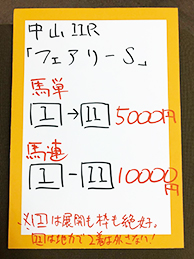 中山11R
「フェアリーS」
馬単
1→11 5000円
馬連
1-11 10000円
※1は展開も枠も絶好。
11は地力で2着は外さない!